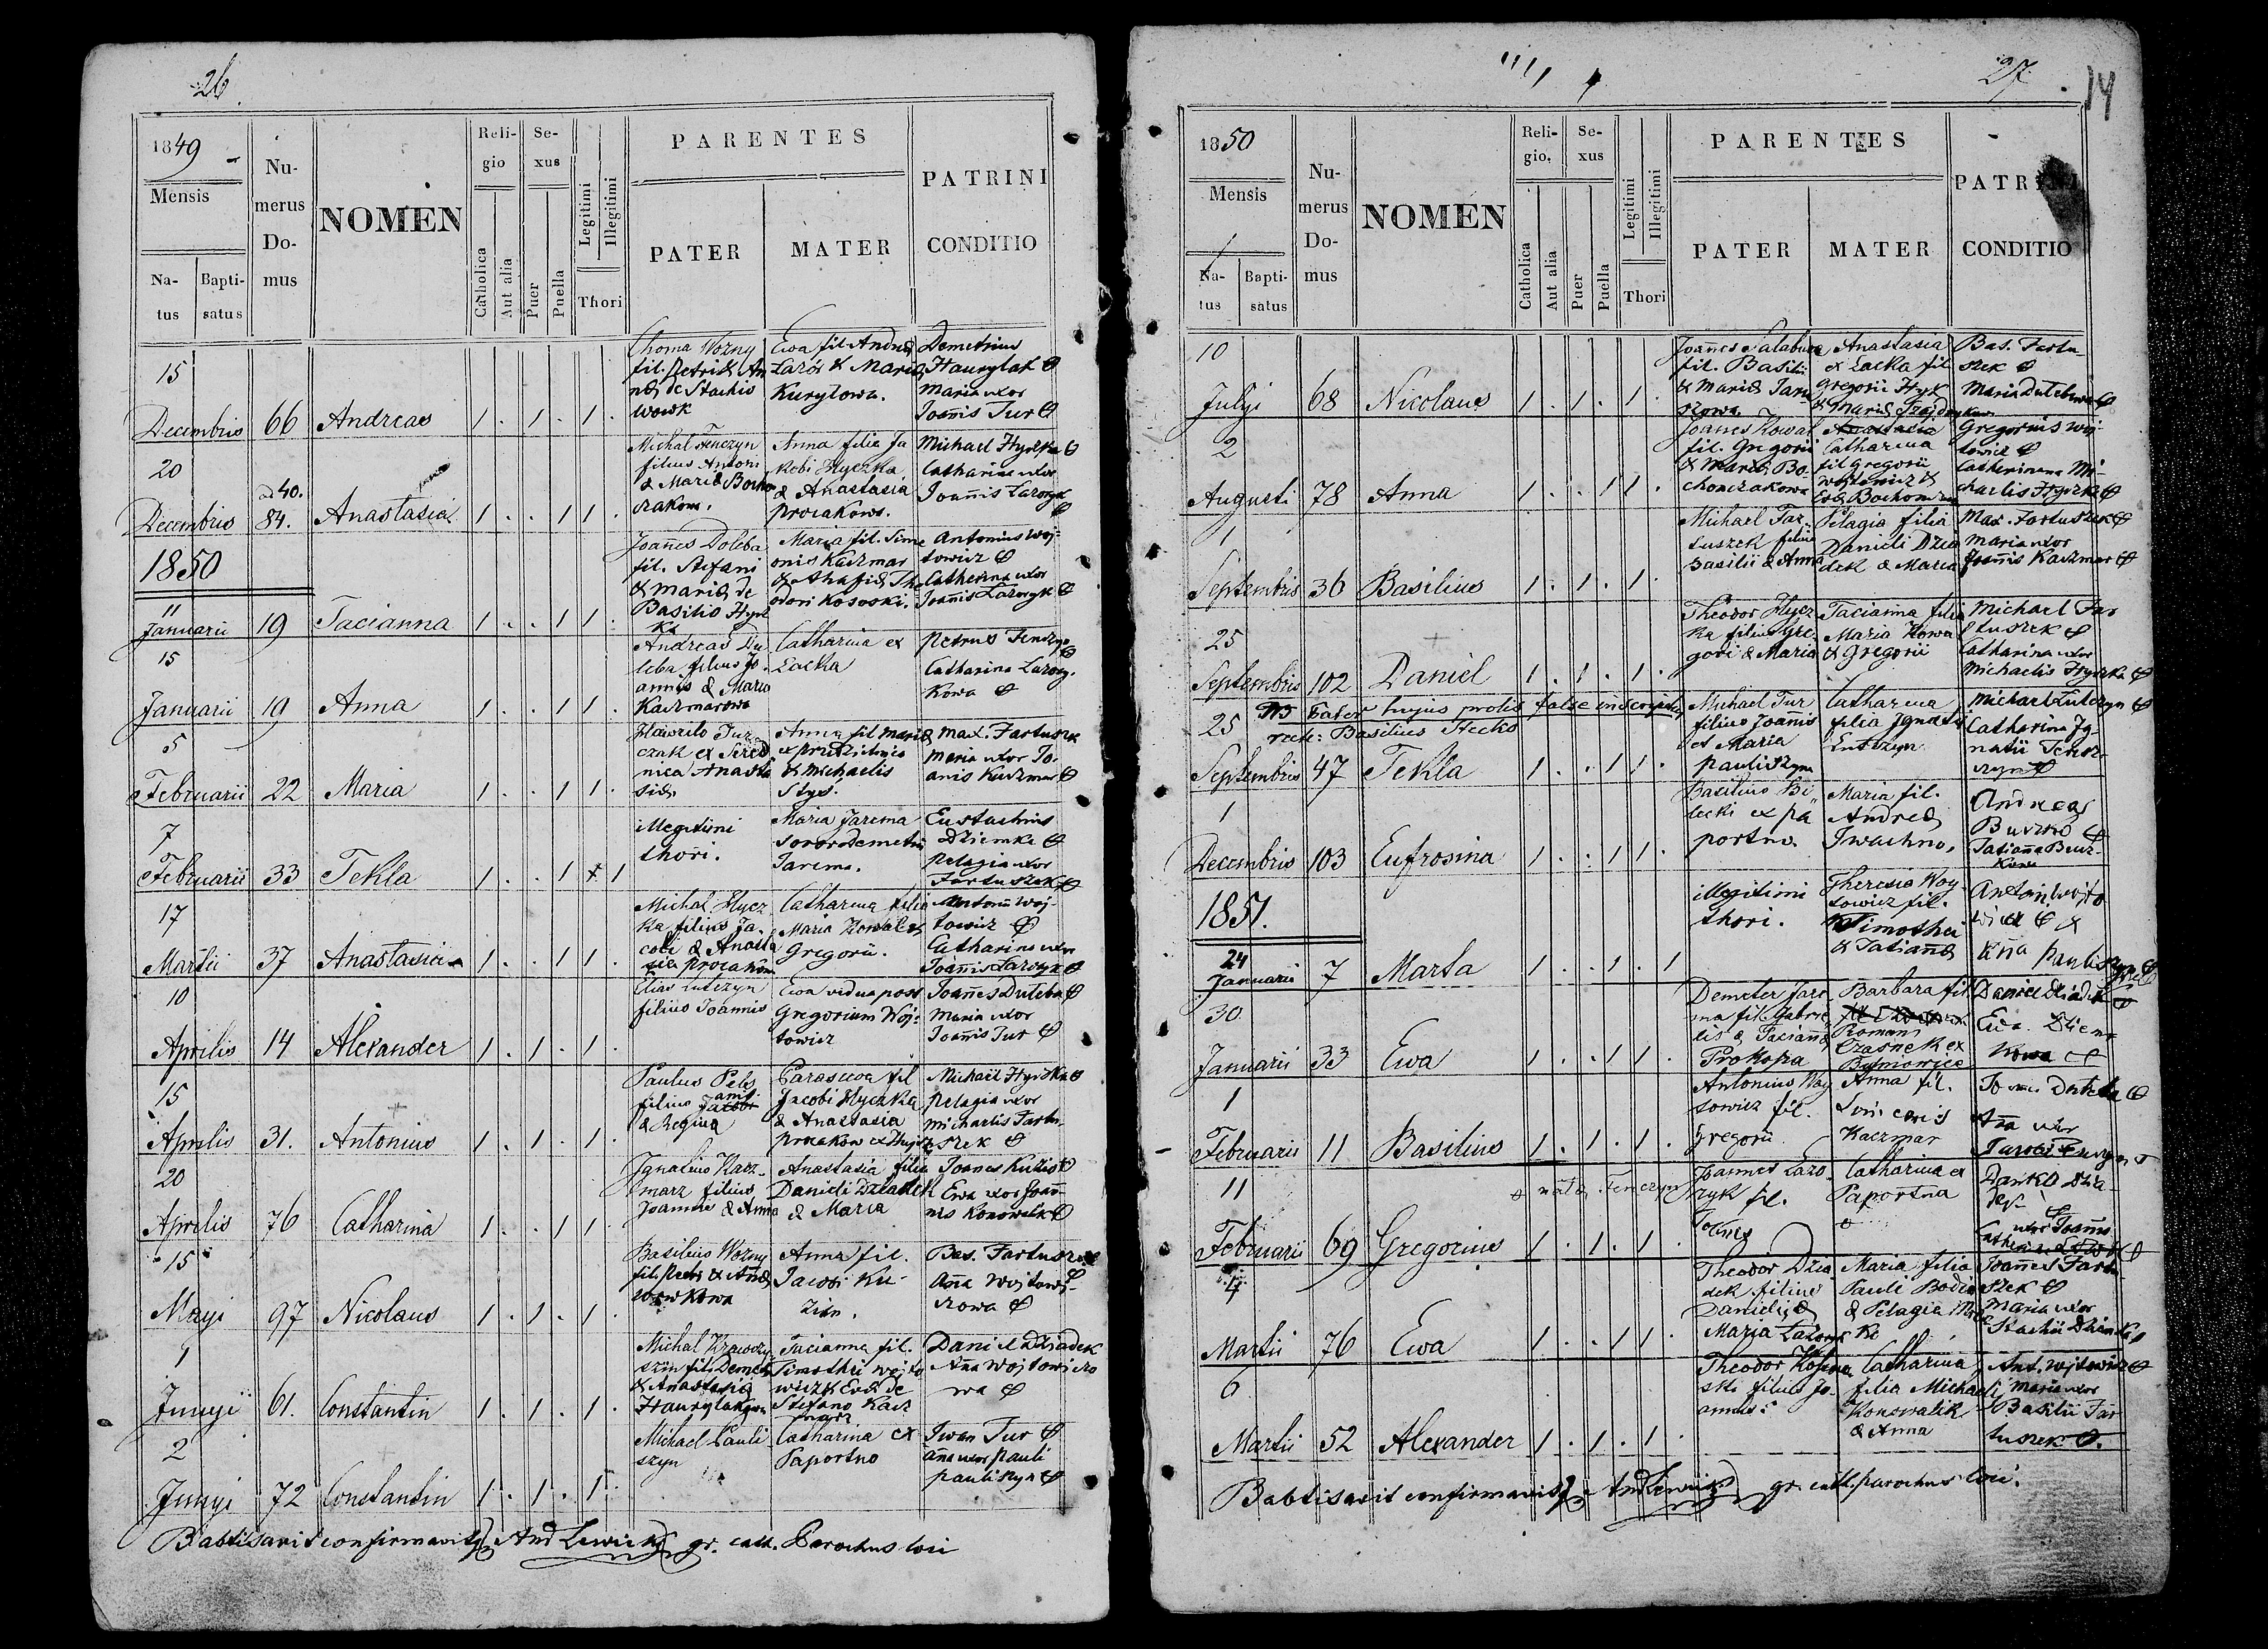 26
1849
Mensis
Na-
tus
Bapti-
satus
Nu-
merus
Do-
mus
NOMEN
Reli-
gio
Catholica
Aut alia
Se-
xus
Puer
Puella
Legitimi
Illegitimi
Thori
PARENTES
PATER
MATER
PATRINI
CONDITIO
15
Decembris 66 Andreas 1 . 1 . 1 .
Thoma Wozny
fil. Petri & An
wowk
Ewa fil Andreæ
Kurytowa.
Demetrius
Maria uxor
Joañis Tur
20
Decembris 84. Anastasia 1 . . 1 1 .
40.
Michal Fenczyn
filius Antoni
& Mariæ
Anna filia Ja
kobi Hyczka
& Anastasia
Michael Hyczka
Catharina uxor
Joannis Lazoryk
1850
11
Januarii 19 Tacianna 1 . . 1 1 .
Joañes Doleba
fil. Stefani
& Mariæ de
Basilio Hycz
ka
Maria fil. Sime
onis Kaczmar
Antonius Woj-
towicz
Catherina uxor
Joañis Lazoryk
15
Januarii 19 Anna 1 . . 1 1 .
Andreas Du
leba filius Jo
annis & Maria
Kaczmarowa
Catharina ex
Lacka
Petrus Fenczyn
Catharina Lazory-
kowa
5
Februarii 22 Maria 1 . . 1 1 .
Hawrilo Jur
czak ex Sered
nica Anasta
siæ
Anna fil Mariæ
& Michaelis
Stys.
Max. Fartuszek
Maria uxor Jo-
anis Kaczmar
7
Februarii 33 Tekla 1 . . 1 1
illegitimi
thori.
Maria Jarema
soror Demetri
Jarema.
Eustachius
Dziemka
Pelagia uxor
Fartuszek
17
Martii 37 Anastasia 1 . . 1 1 .
Michal Hycz
ka filius Ja-
cobi & Anasta
sia
Catharina filia
Maria Kowal &
Gregorii.
Antoni Woj-
towicz
Catharina uxor
Joannis Lazoryk
10
Aprilis 14 Alexander 1 . 1 . 1 .
Elias Lutczyn
filius Joannis
Ewa vidua post
Gregorium Woj-
towicz
Joañes Duleba
Maria uxor
Joañis Tur
15
Aprilis 31. Antonius 1 . 1 . 1 .
Paulus Pelc
filius
& Regina
Parascewa fil
Jacobi Hyczka
& Anastasia
Michail Hyczka
Pelagia uxor
Michaelis Fartu-
szek
20
Aprilis 76 Catharina 1 . . 1 1 .
Ignatius Kacz-
marz filius
Joannis & Anna
Anastasia filia
Danieli Dziadek
& Maria
Joanes Kuzio
Ewa uxor Joañ-
nis Konowalik
15
Mayi 97 Nicolaus 1 . 1 . 1 .
Basilius Wozny
fil. Petri & Añæ
wowkowa
Anna fil.
Jacobi Ku-
zian.
Bas. Fartuszek
Aña Wojtowi-
czowa
1
Junyi 61. Constantin 1 . 1 . 1 .
Michal Krawczy
szyn fil. Demetri
& Anastasia
Tacianna fil.
Timothei Wojto
wicz & Evæ de
Stefano Kacz
marz
Daniel Dziadek
Aña Wojtowiczo
wa
2
Junyi 72 Constantin 1 . 1 . 1 .
Michael Pauli
szyn
Catharina ex
Paportno
Iwan Tur
aña uxor Pauli
Pauliszyn
Babtisavit confirmavitq And Lewicki gr. cath. Parochus loci
27.
14
1850
Mensis
Na-
tus
Bapti-
satus
Nu-
merus
Do-
mus
NOMEN
Reli-
gio.
Catholica
Aut alia
Se-
xus
Puer
Puella
Legitimi
Illegitimi
Thori
PARENTES
PATER
MATER
PATRINI
CONDITIO
10
Julyi 68 Nicolaus 1 . 1 . 1 .
Joañes Salabura
fil. Basilii
& Mariæ
Anastasia
ex Lacka fil
Gregorii Hyk
Bas. Fartu-
szek
Maria Dulebowa
2
Augusti 78 Anna 1 . . 1 1 .
Joanes Kowal
fil. Gregorii
& Mariæ Bo-
chonczakowa
Anastasia
Catharina
fil Gregorii
Wojtowicz &
Gregorius Woj-
towicz
Catherinana Mi-
chaelis Hyczka
1
Septembris 36 Basilius 1 . 1 . 1 .
Michael Far-
tuszek filius
Basilii & Anna
Pelagia filia
Danieli Dzia
dek & Maria
Max. Fartuszek
Maria uxor
Joannis Kaczmar
25
Septembris 102 Daniel 1 . 1 . 1 .
Theodor Hycz
ka filius Gre-
gori & Maria
Tacianna filia
Maria Kowal
& Gregorii
Michael Far
tuszek
Catharina uxor
Michaelis Hyczka
NB Pater hujus prolis false inscriptus
recte: Basilius Stecko
25
Septembris 47 Tekla 1 . . 1 1 .
Michael Tur
filius Joañis
et Maria
Pauliszyn
Catharina
filia Ignatii
Lutczyn
Michael Lutczyn
Catharina Ig-
natii Fencz-
czyn
1
Decembris 103 Eufrosina 1 . . 1 1 .
Basilius Bi-
lecki ex Pa
portno.
Maria fil.
Andreæ
Iwachno.
Andreas
Tatiana
1851.
24
Januarii 7 Marta 1 . . 1 . 1
illegitimi
thori.
Theresia Woy-
towicz fil.
Timothei
& Tatiannæ
Antoni Wojto
wicz &
Aña Paulisz
30
Januarii 33 Ewa 1 . . 1 1 .
Demeter Jare
ma fil. Gabrie
lis & Taciannæ
Prokopa
Barbara fil
Romani
Czasnek ex
Daniel Dziadek
Ewa Dziem-
kowa
1
Februarii 11 Basilius 1 . 1 . 1 .
Antonius Woy
towicz fil.
Gregorii
Anna fil.
Kaczmar
Duleba
Aña uxor
11
Februarii 69 Gregorius 1 . 1 . 1 .
nata Fenczyn
Joannes Lazo
ryk fil.
Catharina ex
Paportna
Daniel Dzia-
dek
uxor Joañis
4
Martii 76 Ewa 1 . . 1 1 .
Theodor Dzia
dek filius
Danieli &
Maria Lazoryk
Maria filia
Pauli
& Pelagia
Joannes Fartu-
szek
Maria uxor
Stachii Dziemka
6
Martii 52 Alexander 1 . 1 . 1 .
Theodor
ski filius Jo-
annis
Catharina
filia Michaeli
Konowalik
& Anna
Ant. Wojtowicz
Maria uxor
Basilii Far
tuszek
Babtisavit confirmavitq And Lewicki gr. cath. parochus loci.